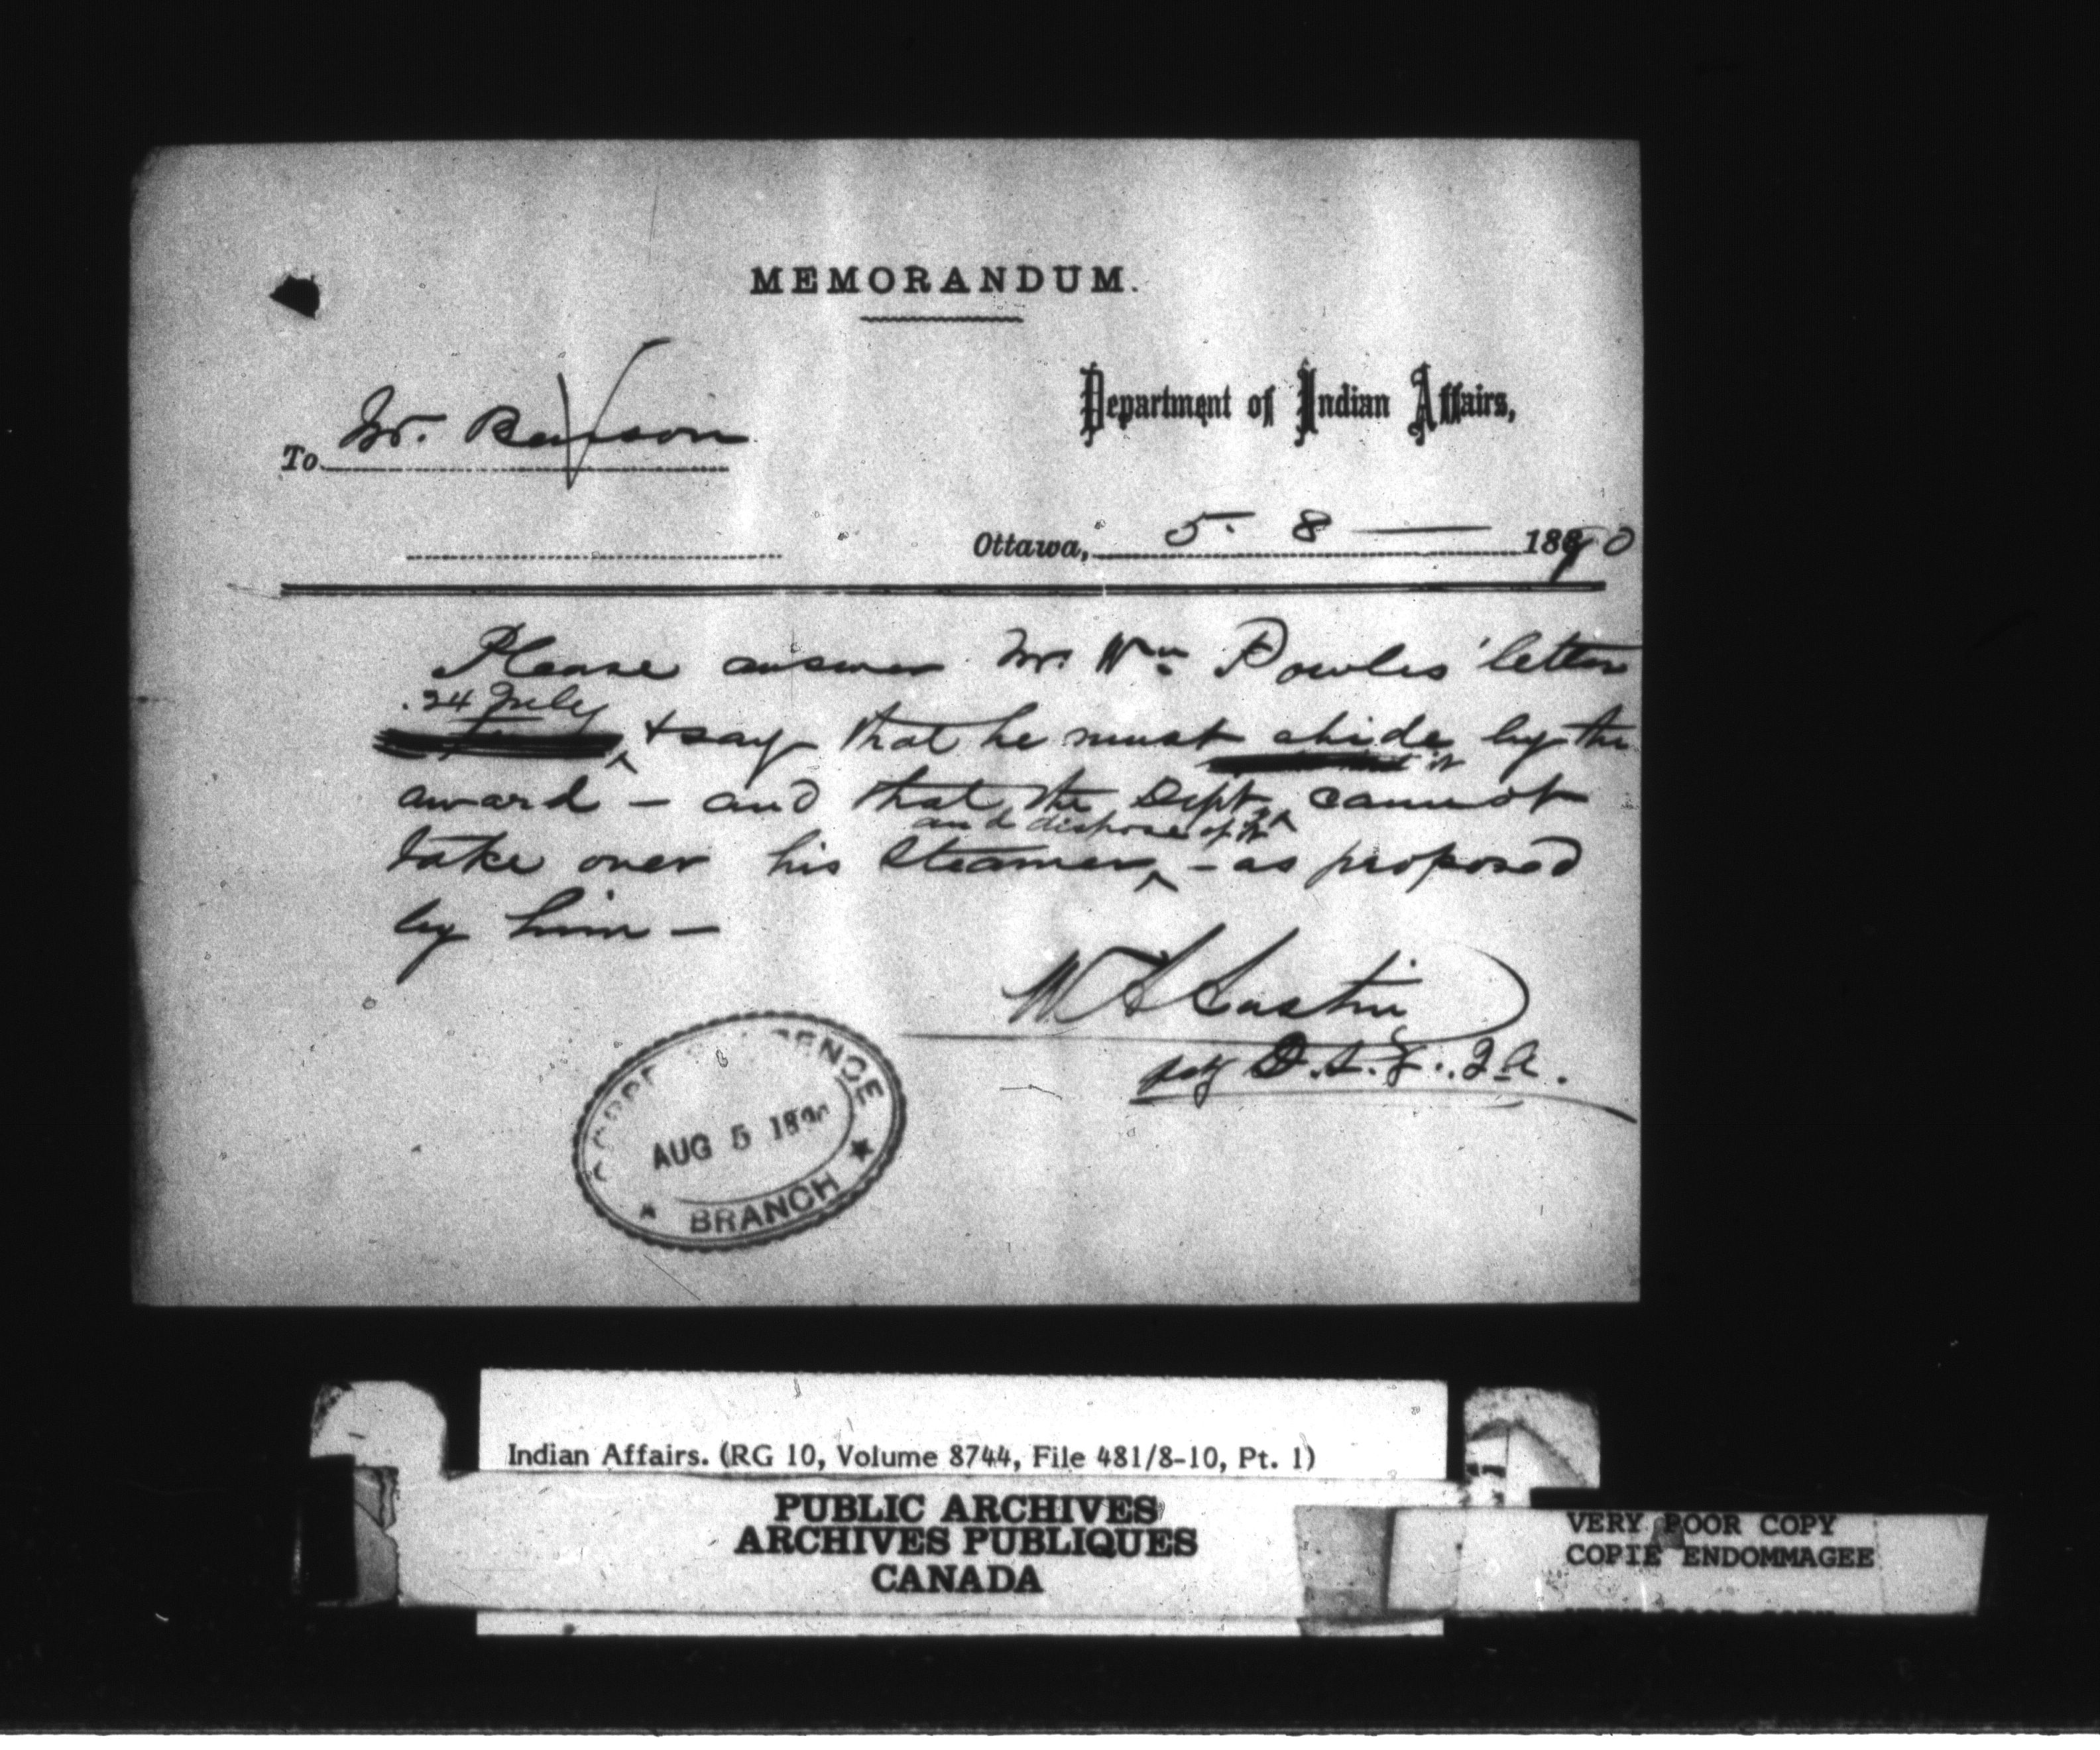 MEMORANDUM.
Department of Indian Affairs,
To Mr. Benson
Ottawa, 5. 8 — 1890
Please answer Mr. Wm Powles' letter
24 July
& say that he must abide by the
award — and that the Dept. cannot
and dispose of it
take over his Steamer, — as proposed
by him —
W A Austin
D.S.G.I.A.
CORRESPONDENCE
AUG 5 1890
BRANCH
Indian Affairs. (RG 10, Volume 8744, File 481/8-10, Pt. 1)
PUBLIC ARCHIVES
ARCHIVES PUBLIQUES
CANADA
VERY POOR COPY
COPIE ENDOMMAGEE